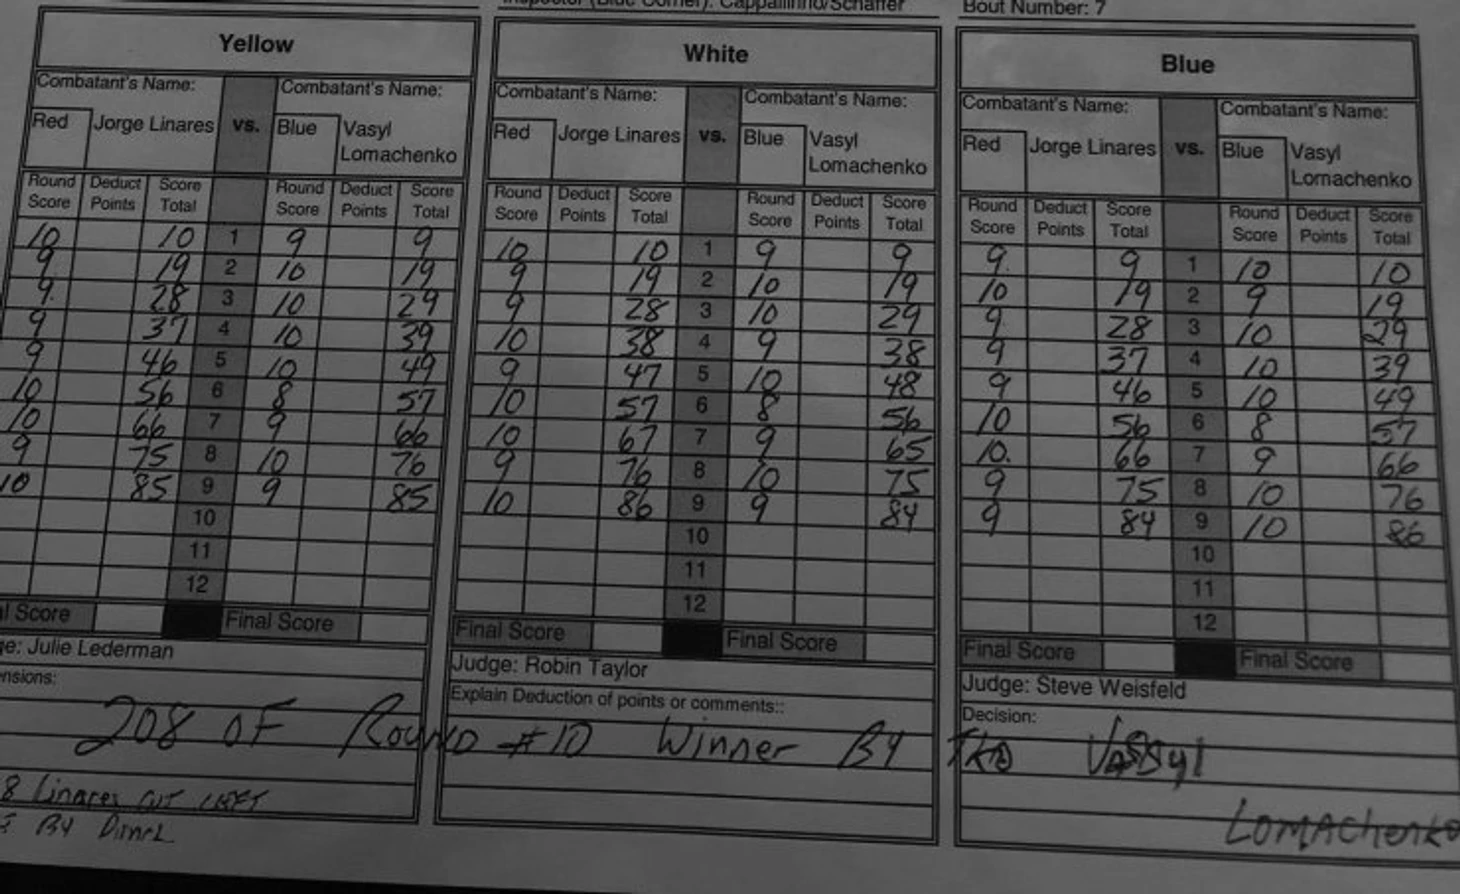 Inspector (Blue Corner): Cappallinno/Schaffer
Bout Number: 7
Yellow
Combatant's Name: Combatant's Name:
Red Jorge Linares vs. Blue Vasyl Lomachenko
Round Score Deduct Points Score Total Round Score Deduct Points Score Total
10 10 1 9 9
9 19 2 10 19
9 28 3 10 29
9 37 4 10 39
9 46 5 10 49
10 56 6 8 57
10 66 7 9 66
9 75 8 10 76
10 85 9 9 85
10
11
12
Score Final Score
Julie Lederman
White
Combatant's Name: Combatant's Name:
Red Jorge Linares vs. Blue Vasyl Lomachenko
Round Score Deduct Points Score Total Round Score Deduct Points Score Total
10 10 1 9 9
9 19 2 10 19
9 28 3 10 29
10 38 4 9 38
9 47 5 10 48
10 57 6 8 56
10 67 7 9 65
9 76 8 10 75
10 86 9 9 84
10
11
12
Final Score Final Score
Judge: Robin Taylor
Explain Deduction of points or comments::
Blue
Combatant's Name: Combatant's Name:
Red Jorge Linares vs. Blue Vasyl Lomachenko
Round Score Deduct Points Score Total Round Score Deduct Points Score Total
9 9 1 10 10
10 19 2 9 19
9 28 3 10 29
9 37 4 10 39
9 46 5 10 49
10 56 6 8 57
10 66 7 9 66
9 75 8 10 76
9 84 9 10 86
10
11
12
Final Score Final Score
Judge: Steve Weisfeld
Decision:
208 OF Round #10 Winner By TKO Vassyl
Lomachenko
8 Linares CUT LEFT
By